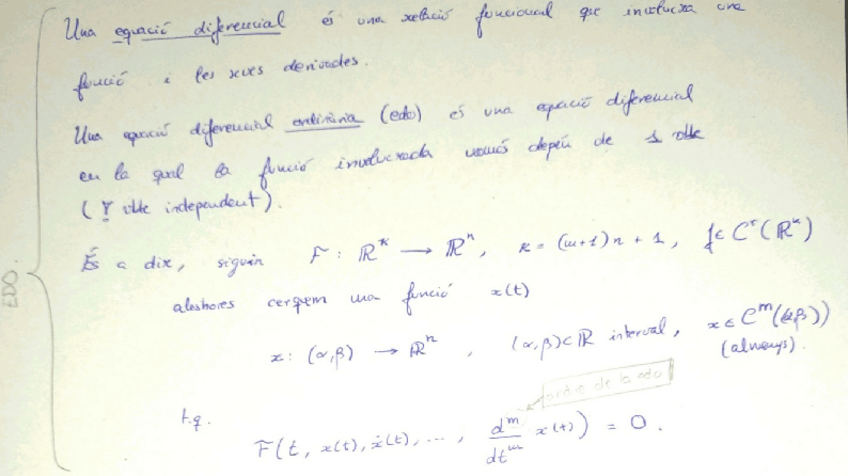 Una equació diferencial és una relació funcional que involucra una
funció i les seves derivades.
Una equació diferencial ordinària (edo) és una equació diferencial
en la qual la funció involucrada només depèn de 1 vble
(1 vble independent).
EDO.
És a dir, siguin F : ℝᵏ ⟶ ℝⁿ, k = (m+1)n + 1, f ∈ Cʳ(ℝᵏ)
aleshores cerquem una funció x(t)
x : (α,β) → ℝⁿ, (α,β) ⊂ ℝ interval, x ∈ Cᵐ((α,β))
(almenys).
ordre de la edo
t.q.
F(t, x(t), ẋ(t), ..., dᵐ/dtᵐ x(t)) = 0.